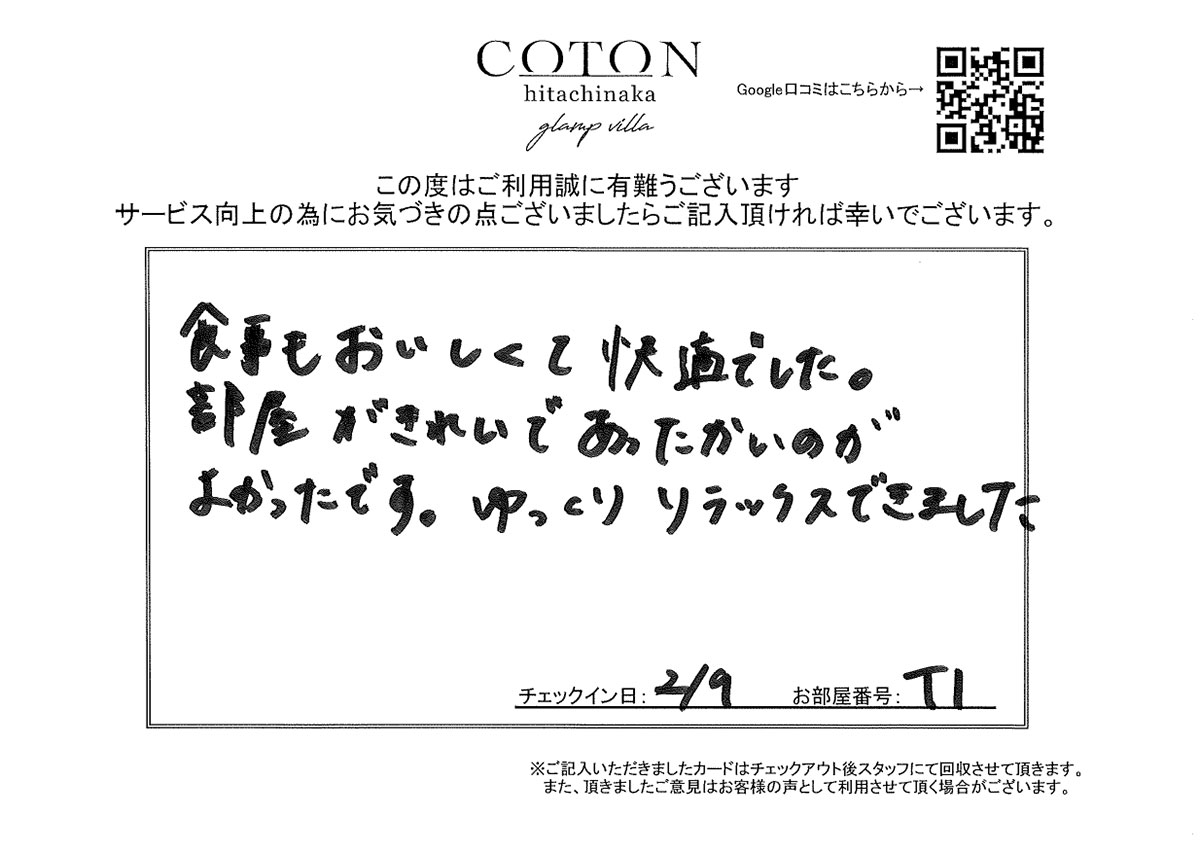 COTON
hitachinaka
glamp villa
Google口コミはこちらから→
この度はご利用誠に有難うございます
サービス向上の為にお気づきの点ございましたらご記入頂ければ幸いでございます。
食事もおいしくて 快適でした。
部屋がきれいであったかいのが
よかったです。ゆっくり リラックスできました
チェックイン日: 2/9 お部屋番号: T1
※ご記入いただきましたカードはチェックアウト後スタッフにて回収させて頂きます。
また、頂きましたご意見はお客様の声として利用させて頂く場合がございます。